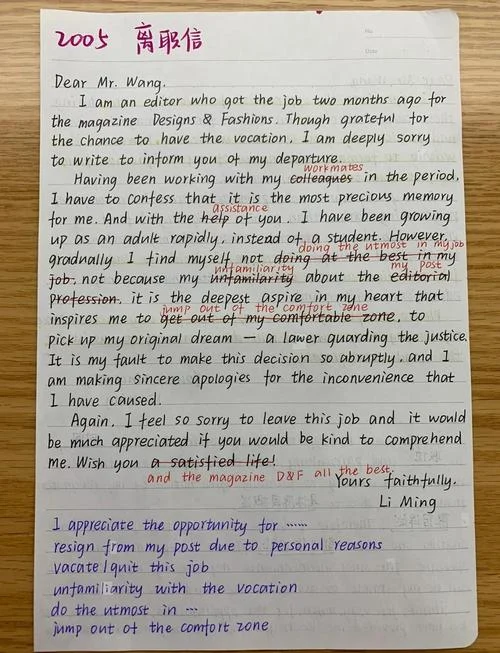 2005 离职信
No
Date
Dear Mr. Wang.
I am an editor who got the job two months ago for
the magazine Designs & Fashions. Though grateful for
the chance to have the vocation, I am deeply sorry
to write to inform you of my departure.
workmates
Having been working with my colleagues in the period,
I have to confess that it is the most precious memory
assistance
for me. And with the help of you, I have been growing
up as an adult rapidly, instead of a student. However,
doing the utmost in my job
gradually I find myself not doing at the best in my
unfamiliarity my post
job, not because my unfamiliarity about the editorial
profession, it is the deepest aspire in my heart that
jump out of the comfort zone
inspires me to get out of my comfortable zone, to
pick up my original dream — a lawer guarding the justice.
It is my fault to make this decision so abruptly, and I
am making sincere apologies for the inconvenience that
I have caused.
Again, I feel so sorry to leave this job and it would
be much appreciated if you would be kind to comprehend
me. Wish you a satisfied life!
and the magazine D&F all the best.
Yours faithfully.
Li Ming
I appreciate the opportunity for ......
resign from my post due to personal reasons
vacate/quit this job
unfamiliarity with the vocation
do the utmost in ...
jump out of the comfort zone